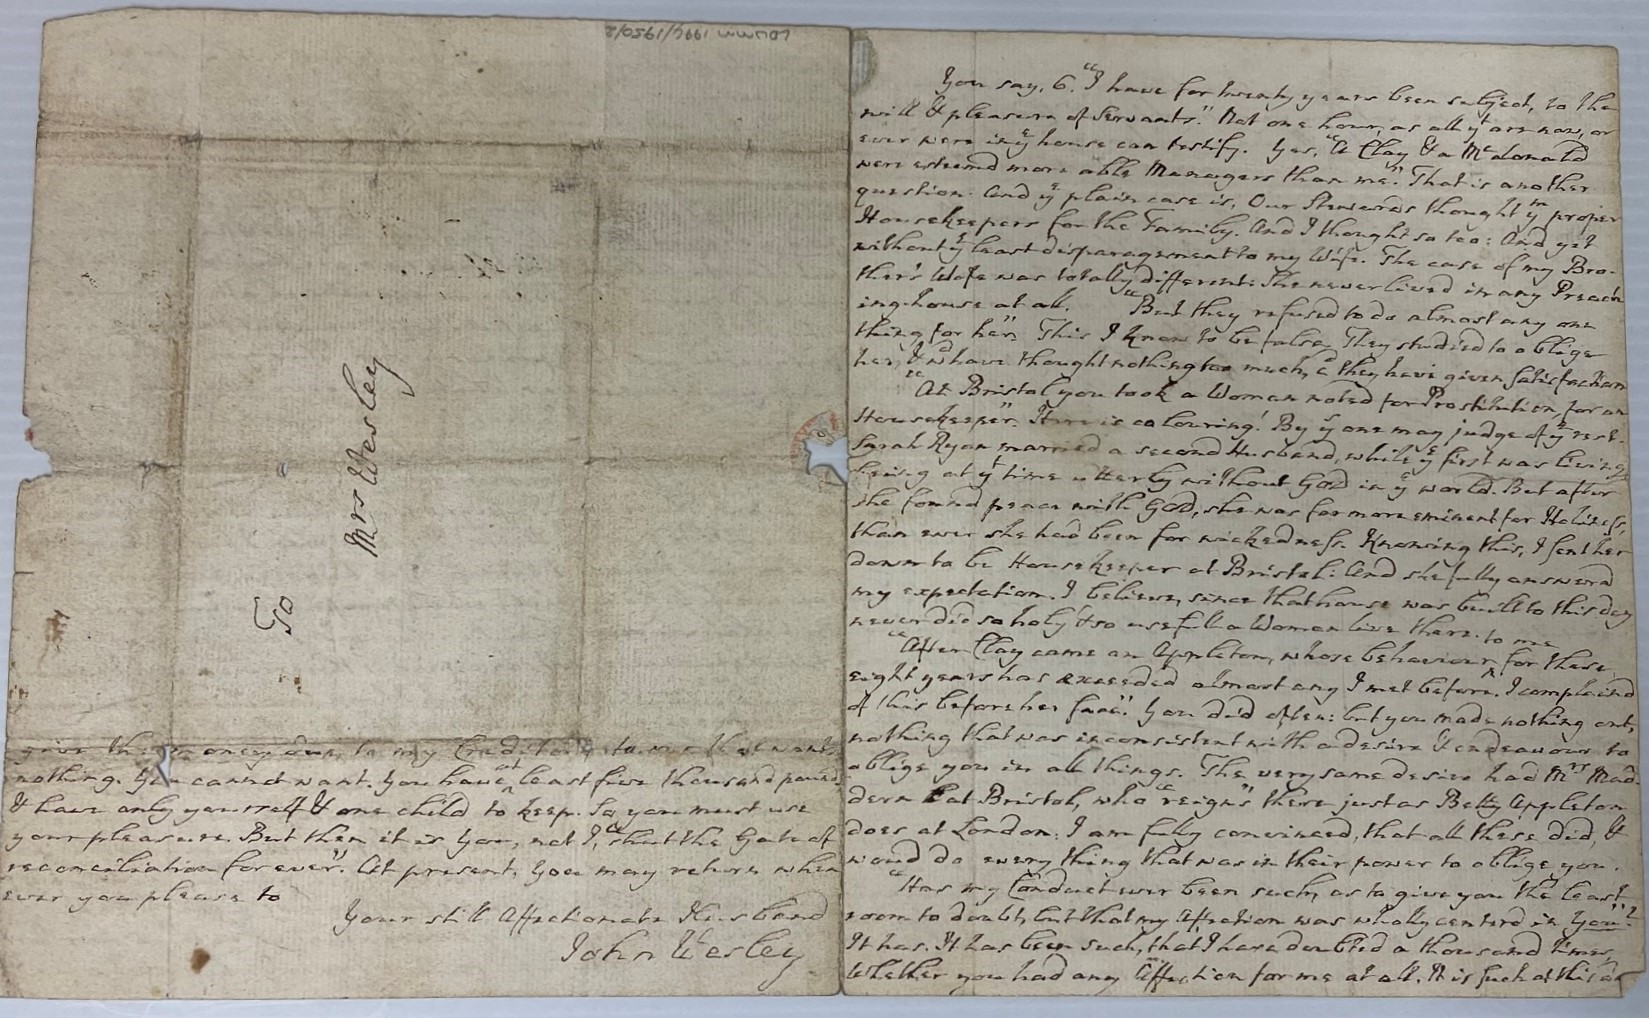 LDWMM 1994/1950/2
To
Mrs Wesley
give the money due to my Creditors, to me that want
nothing. You cannot want. You have at least five thousand pounds,
& have only yourself & one child to keep. So you must use
your pleasure. But then it is You, not I, "shut the Gate of
reconciliation for ever". At present, You may return when
ever you please to
Your still Affectionate Husband
John Wesley
You say, 6. "I have for twenty years been subject, to the
will & pleasure of Servants." Not one hour, as all yt are now, or
ever were in ye house can testify. Yes, "A Clay & a McDonald
were esteemd more able Managers than me." That is another
question. And ye plain case is, Our Stewards thought ym proper
Housekeepers for the Family. And I thought so too: And yet
without ye least disparagement to my Wife. The case of my Bro-
ther's Wife was totally different: She never lived in any Preach
ing-house at all. "But they refused to do almost any one
thing for her". This I know to be false. They studied to oblige
her, & wd have thought nothing too much, cd they have given Satisfaction
"At Bristol you took a Woman noted for Prostitution, for an
Housekeeper". Here is colouring! By ys one may judge of ye rest.
Sarah Ryan married a second Husband, while ye first was living
being at yt time utterly without God in ye world. But after
she found peace with God, she was far more eminent for Holiness,
than ever she had been for wickedness. Knowing this, I sent her
down to be Housekeeper at Bristol: And she fully answerd
my expectation. I believe, since that house was built to this day
never did so holy & so usefull a Woman live there.
"After Clay came an Appleton, whose behaviour to me for these
eight years has exceeded almost any I met before. I complaind
of this before her face". You did often: but you made nothing out,
nothing that was inconsistent with a desire & endeavour to
oblige you in all things. The very same desire had Mrs Mad-
dern at Bristol, who "reigns" there just as Betty Appleton
does at London: I am fully convinced, that all these did, &
woud do every thing that was in their power to oblige you.
"Has my Conduct ever been such, as to give you the least
room to doubt, but that my Affection was wholly centerd in You"?
It has. It has been such, that I have doubted a thousand times,
Whether you had any Affection for me at all. It is such at this